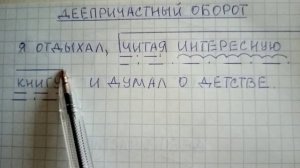 ДЕЕПРИЧАСТНЫЙ ОБОРОТ
Я ОТДЫХАЛ, ЧИТАЯ ИНТЕРЕСНУЮ
КНИГУ И ДУМАЛ О ДЕТСТВЕ.